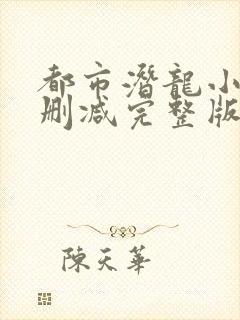 都市潛龍小
删减完整版
陳天華